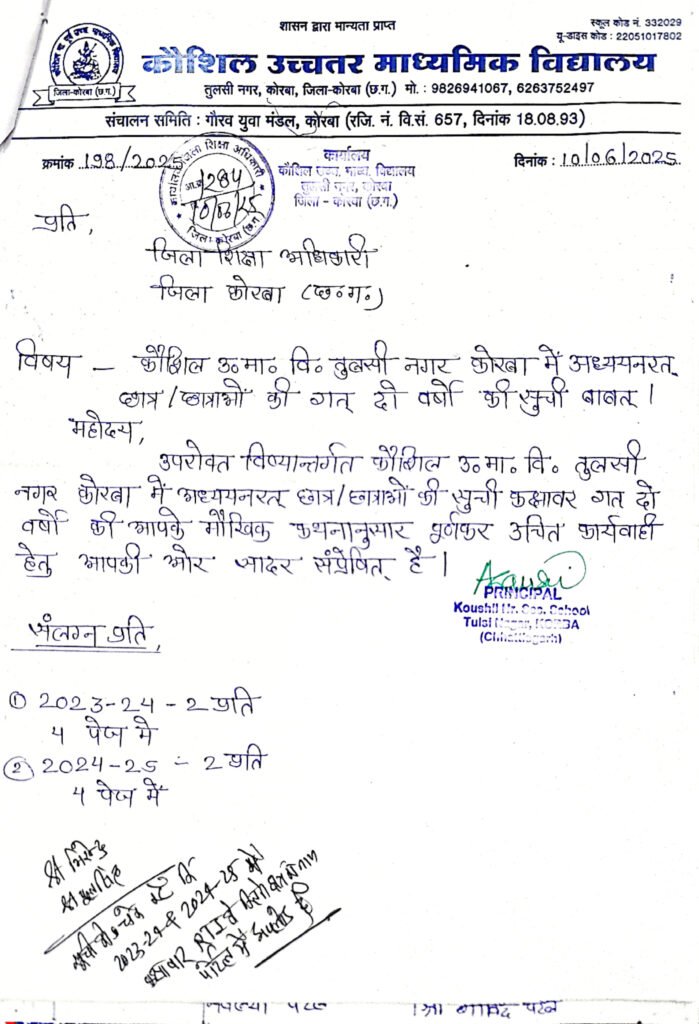 शासन द्वारा मान्यता प्राप्त
स्कूल कोड नं. 332029
यू-डाइस कोड : 22051017802
जिला-कोरबा (छ.ग.)
कौशिल उच्चतर माध्यमिक विद्यालय
तुलसी नगर, कोरबा, जिला-कोरबा (छ.ग.) मो. : 9826941067, 6263752497
संचालन समिति : गौरव युवा मंडल, कोरबा (रजि. नं. वि.सं. 657, दिनांक 18.08.93)
क्रमांक 198/2025
दिनांक : 10/06/2025
कार्यालय जिला शिक्षा अधिकारी
1284
10/06/25
जिला-कोरबा (छ.ग.)
कार्यालय
कौशिल उच्च. माध्य. विद्यालय
तुलसी नगर, कोरबा
जिला - कोरबा (छ.ग.)
प्रति,
जिला शिक्षा अधिकारी
जिला कोरबा (छ०ग०)
विषय - कौशिल उ०मा० वि० तुलसी नगर कोरबा में अध्ययनरत्
छात्र/छात्राओं की गत् दो वर्षो की सुची बाबत् ।
महोदय,
उपरोक्त विषयान्तर्गत कौशिल उ०मा० वि० तुलसी
नगर कोरबा में अध्ययनरत् छात्र/छात्राओं की सुची कक्षावर गत् दो
वर्षो की आपके मौखिक कथनानुसार पूर्णकर उचित कार्यवाही
हेतु आपकी ओर सादर संप्रेषित् है ।
PRINCIPAL
Koushil Hr. Sec. School
Tulsi Nagar, KORBA
(Chhattisgarh)
संलग्न प्रति,
① 2023-24 - 2 प्रति
4 पेज मे
② 2024-25 - 2 प्रति
4 पेज में
2023-24 & 2024-25 में
कक्षावार RTE के
पोर्टल में अपलोड